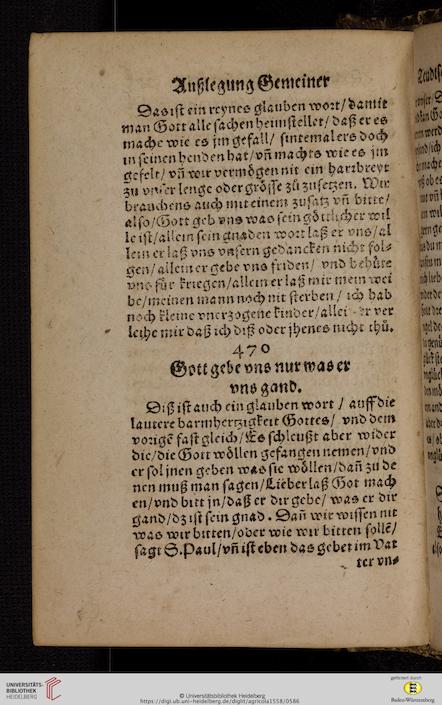 Außlegung Gemeiner
Das ist ein reynes glauben wort/ damit
man Gott alle sachen heimstellet/ daß er es
mache wie es jm gefall/ sintemal ers doch
in seinen henden hat/ vñ machts wie es jm
gefelt/ vñ wir vermögen nit ein harbreyt
zů vnser lenge oder grösse zů zusetzen. Wir
brauchens auch mit einem zusatz vñ bitte/
also/ Gott geb vns was sein göttlicher wil
le ist/ allein sein gnaden wort laß er vns/ al
lein er laß vns vnsern gedancken nicht fol-
gen/ allein er gebe vns friden/ vnd behüte
vns für kriegen/ allein er laß mir mein wei
be/ meinen mann noch nit sterben/ ich hab
noch kleine vnerzogene kinder/ allei er ver
leihe mir daß ich diß oder jhenes nicht thů.
470
Gott gebe vns nur was er
vns gand.
Diß ist auch ein glauben wort / auff die
lautere barmhertzigkeit Gottes/ vnd dem
vorigẽ fast gleich/ Es schleußt aber wider
die/ die Gott wöllen gefangen nemen/ vnd
er sol jnen geben was sie wöllen/ dañ zu de
nen muß man sagen/ Lieber laß Got mach
en/ vnd bitt jn/ daß er dir gebe/ was er dir
gand/ dz ist sein gnad. Dañ wir wissen nit
was wir bitten/ oder wie wir bitten sollẽ/
sagt S. Paul/ vñ ist eben das gebet im Vat
ter vn-
UNIVERSITÄTS-
BIBLIOTHEK
HEIDELBERG
© Universitätsbibliothek Heidelberg
https://digi.ub.uni-heidelberg.de/diglit/agricola1558/0586
gefördert durch
Baden-Württemberg